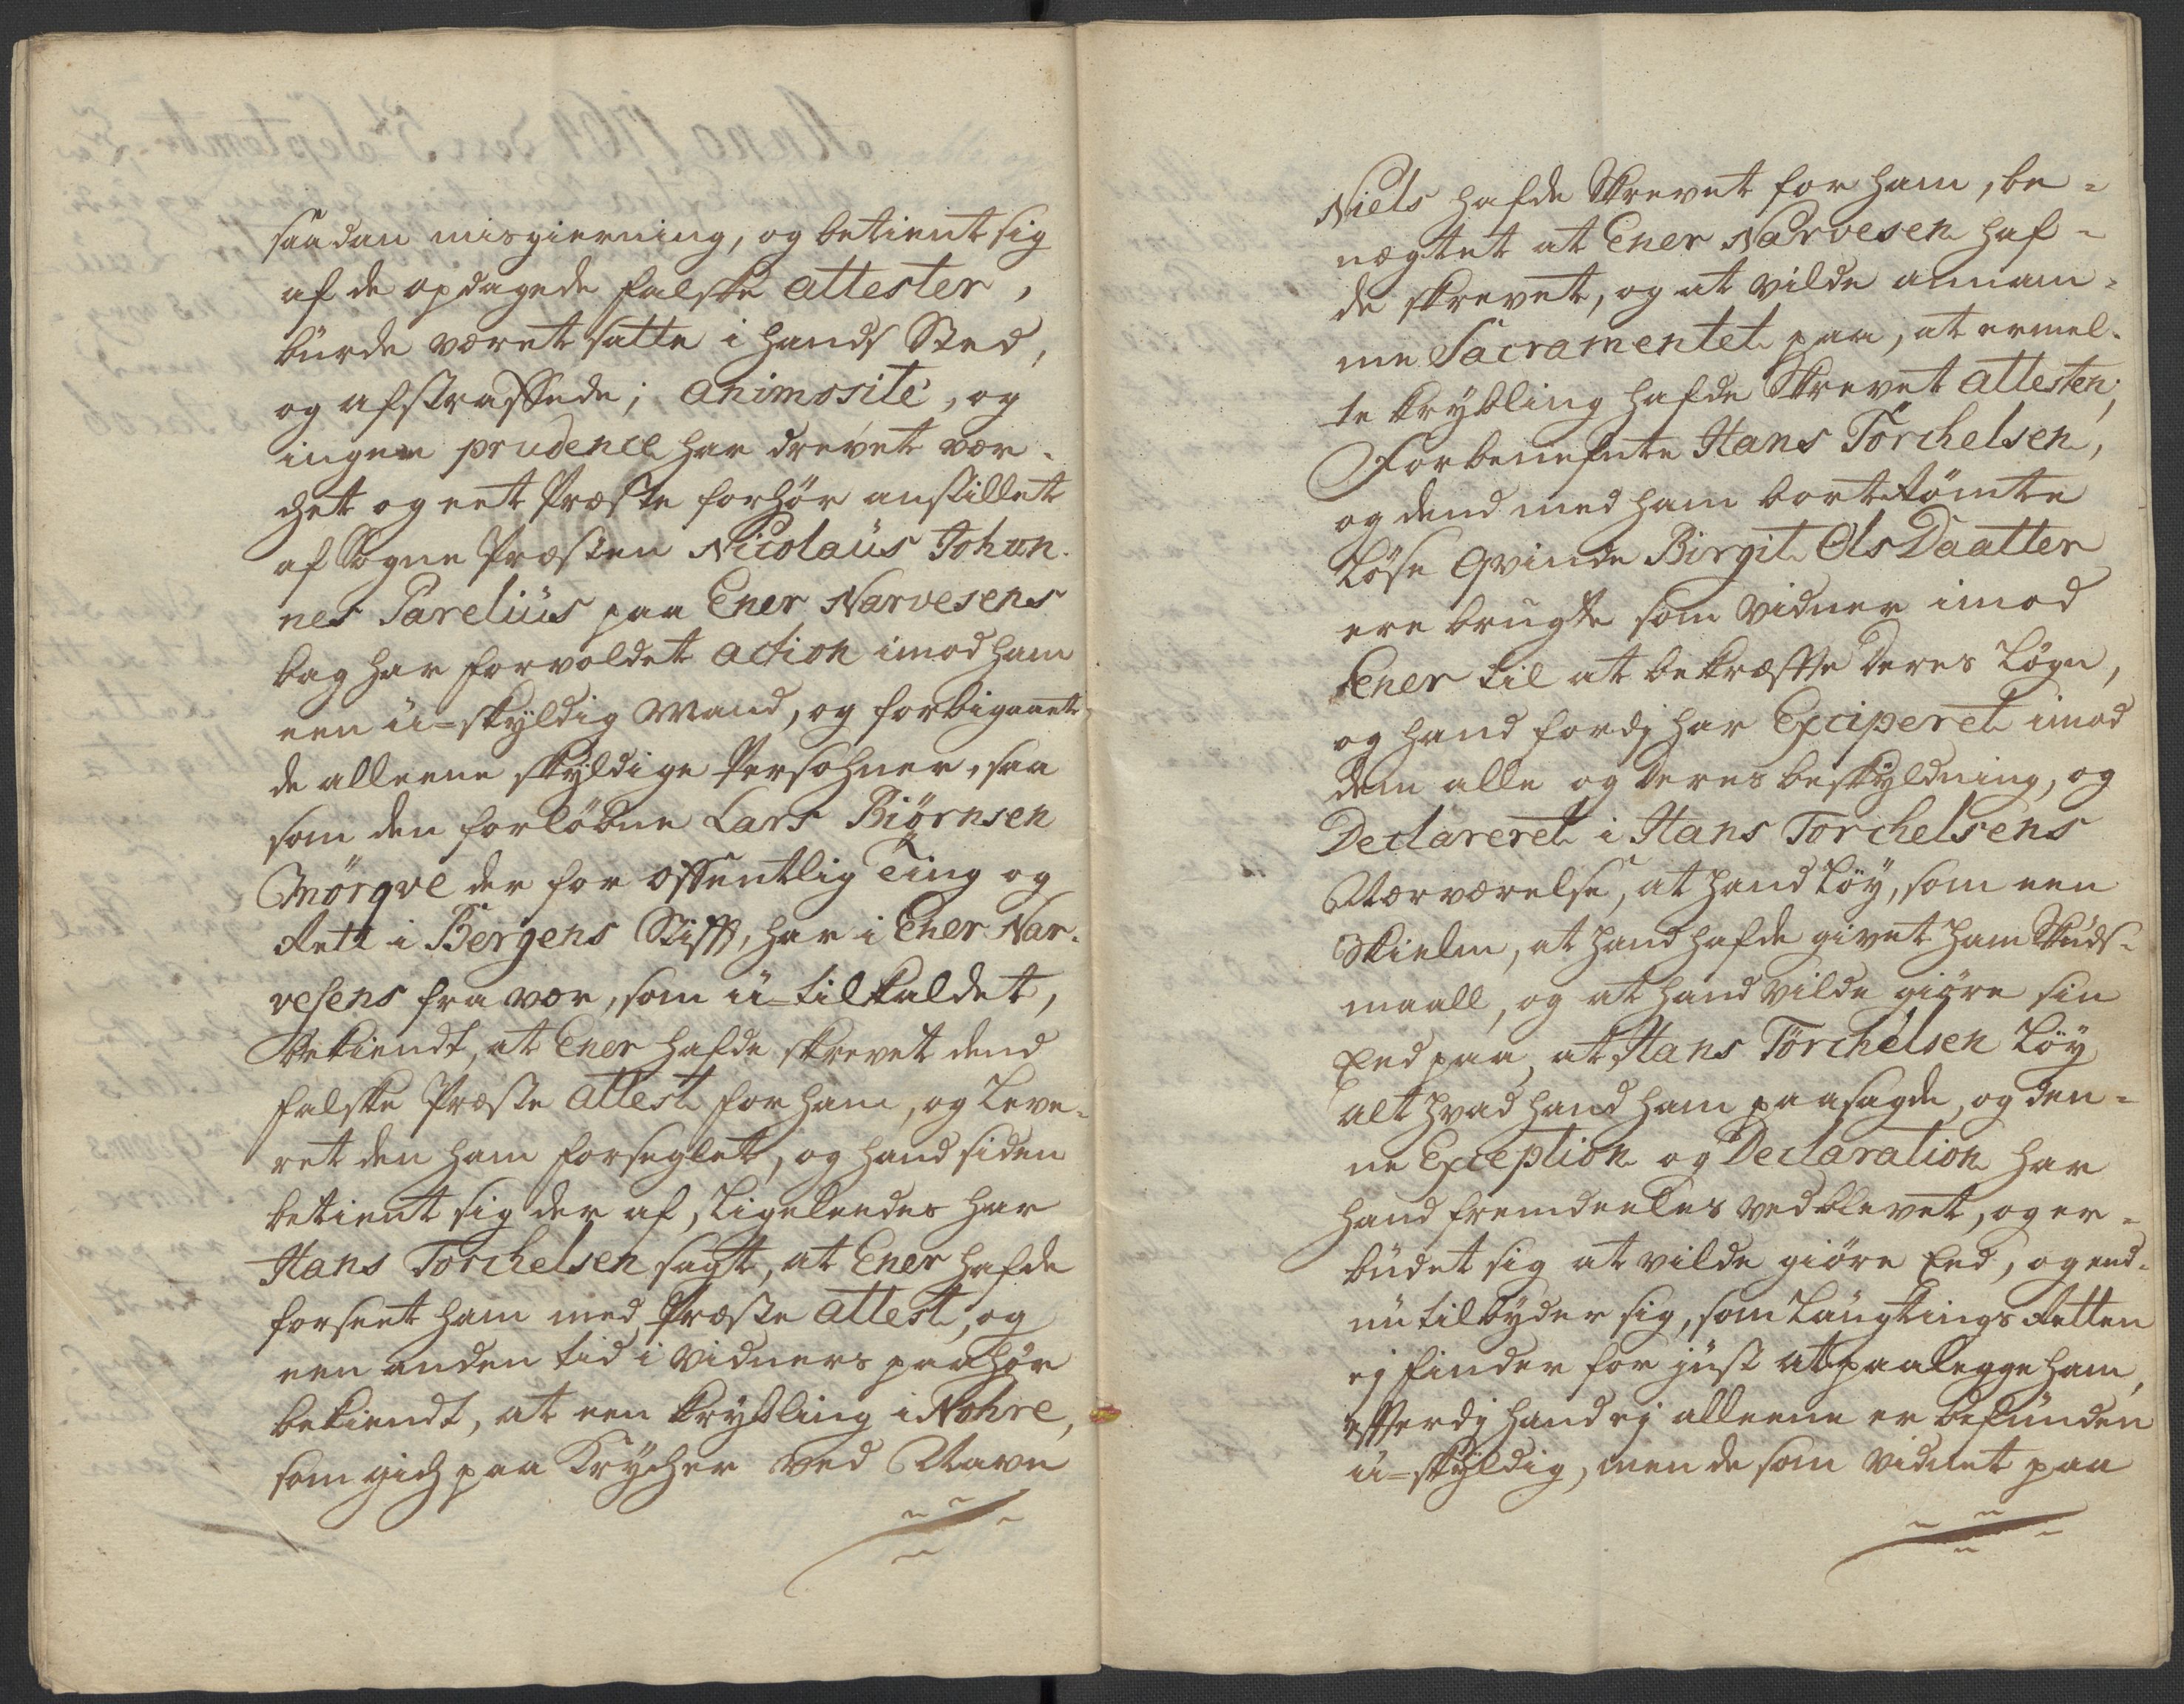 saadan misgierning, og betient sig
af de opdagede falske attester,
burde været satte i hands Sted,
og afstraffede; animosité, og
ingen prudence har drevet vær-
chet og eet Præste forhör anstillet
af Sogne Præsten Nicolaus Johan-
nes Parelius paa Ener Narvesens
bag har forvoldet action imod ham
een u=skyldig Mand, og forbigaaet
de alleene skyldige Persohner, saa
som den forlöbne Lars Biörnsen
Mörqve der for offentlig Ting og
Rett i Bergens Stifft, har i Ener Nar-
vesens fra vær, som u=tilkaldet,
bekiendt, at Ener hafde skrevet dend
falske Præste attest for ham, og Leve-
ret den ham forseglet, og hand siden
betient sig der af, Ligeleedes har
Hans Torchelsen sagt, at Ener hafde
forseet ham med Præste attest, og
een anden tid i vidners paahör
bekiendt, at een krybling i Nohre,
som gich paa Krycher ved Navn
Niels hafde Skrevet for ham, be-
nægtet at Ener Narvesen haf-
de skrevet, og at vilde annam-
me Sacramentet paa, at ermel-
te krybling hafde Skrevet attesten,
Forbenefnte Hans Torchelsen,
og dend med ham bortrömte
Löse Qvinde Birgit Ols Daatter
ere brugte som vidner imod
Ener til at bekræffte deres Lögn,
og hand fordj har Exciperet imod
dem alle og deres beskyldning, og
Declareret i Hans Torchelsens
Nærværelse, at hand Löy, som een
Skielm, at hand hafde givet ham Skuds-
maall, og at hand vilde giöre sin
Eed paa, at Hans Torchelsen Löy
alt hvad hand ham paasagde, og den-
ne Exception og Declaration har
hand fremdeeles ved blevet, og er-
budet sig at vilde giöre Eed, og end-
nu tilbyder sig, som Laugtings Retten
ej finder for just at paalegge ham,
efterdj hand ej alleene er befunden
u=skyldig, men de som vidnet paa